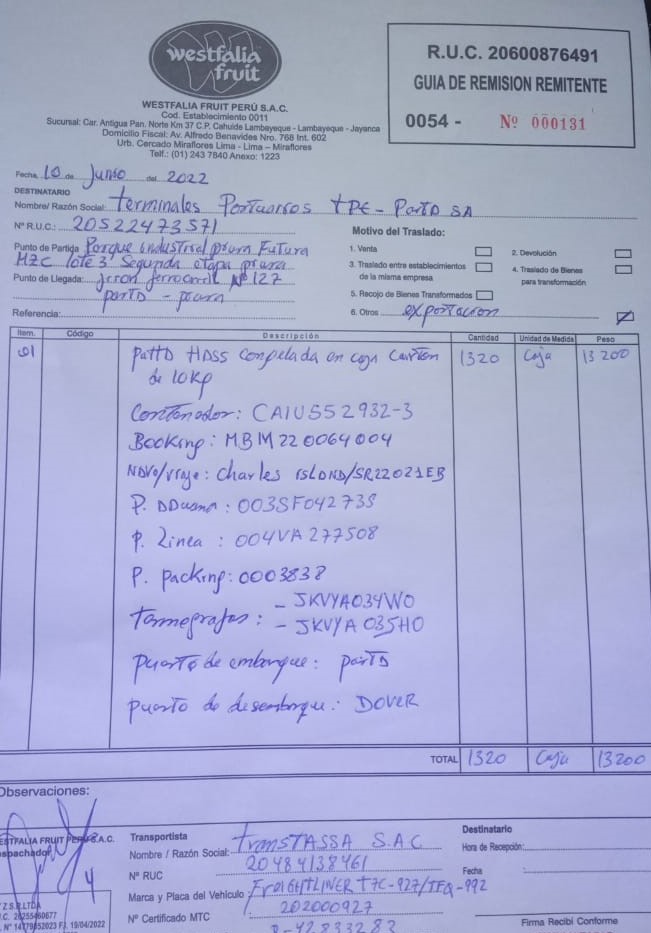 westfalia
fruit
WESTFALIA FRUIT PERÚ S.A.C.
Cod. Establecimiento 0011
Sucursal: Car. Antigua Pan. Norte Km 37 C.P. Cahuide Lambayeque - Lambayeque - Jayanca
Domicilio Fiscal: Av. Alfredo Benavides Nro. 768 Int. 602
Urb. Cercado Miraflores Lima - Lima - Miraflores
Telf.: (01) 243 7840 Anexo: 1223
R.U.C. 20600876491
GUIA DE REMISION REMITENTE
0054 - Nº 000131
Fecha, 10 de Junio del 2022
DESTINATARIO
Nombre/ Razón Social: Terminales Portuarios TPE - Paita SA
Nº R.U.C.: 20522473571
Punto de Partida Parque industrial piura Futura
MZC lote 3 Segunda etapa piura
Punto de Llegada: Jiron ferrocarril Nº 127
paita - piura
Referencia:
Motivo del Traslado:
1. Venta
2. Devolución
3. Traslado entre establecimientos
de la misma empresa
4. Traslado de Bienes
para transformación
5. Recojo de Bienes Transformados
6. Otros exportacion
Item. Código Descripción Cantidad Unidad de Medida Peso
01 palta HASS congelada en caja carton 1320 Caja 13 200
de 10kg
Contenedor: CAIU552932-3
Booking: MBM220064004
Nave/viaje: Charles ISLAND/SR22021EB
P. Aduana: 003SF042735
P. Linea: 004VA277508
P. packing: 0003838
Termografos: - JKVYA034W0
- JKVYA035H0
puerto de embarque: paita
puerto de desembarque: DOVER
TOTAL 1320 Caja 13200
Observaciones:
ESTFALIA FRUIT PERÚ S.A.C.
espachador
Transportista
Nombre / Razón Social: TRANSTASSA S.A.C
Nº RUC 20484138461
Marca y Placa del Vehículo FREIGHTLINER T7C-927/TEQ-992
Nº Certificado MTC 202000927
Destinatario
Hora de Recepción:
Fecha
Firma Recibí Conforme
Z S.R.LTDA